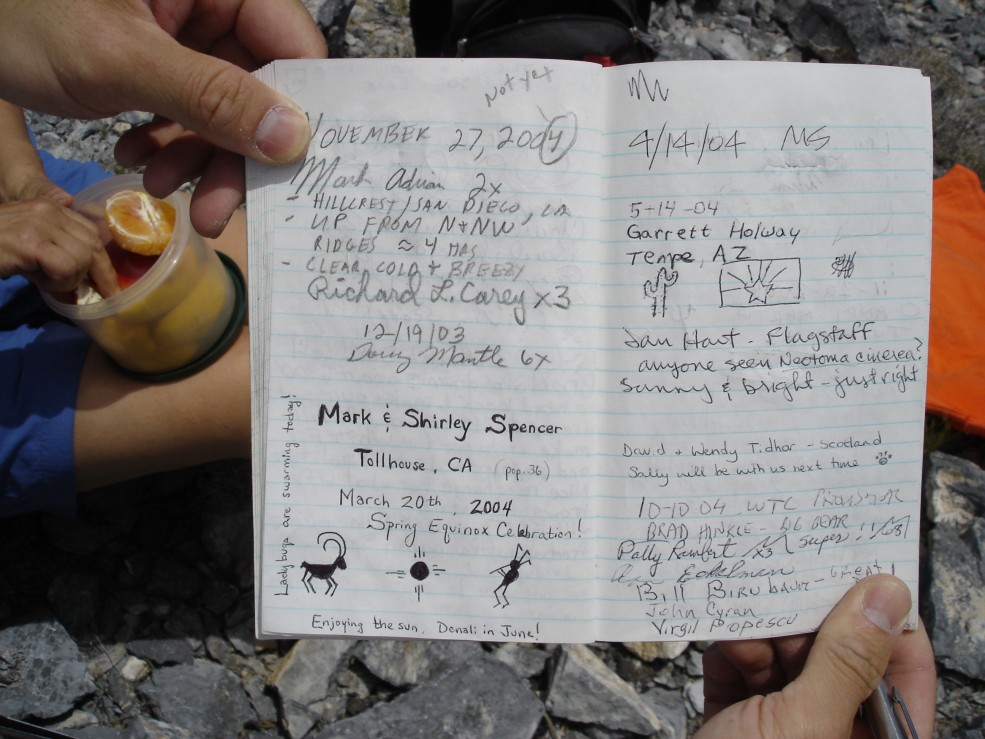 Not yet
NOVEMBER 27, 2004
Mark Adrian 2x
- HILLCREST/SAN DIEGO, CA
- UP FROM N+NW
RIDGES ≈ 4 HRS
- CLEAR, COLD + BREEZY
Richard L. Carey x3
12/19/03
Doug Mantle 6x
Mark & Shirley Spencer
Tollhouse, CA (pop. 36)
March 20th, 2004
Spring Equinox Celebration!
Ladybugs are swarming today!
Enjoying the sun, Denali in June!
4/14/04 MS
5-14-04
Garrett Holway
Tempe, AZ
Dan Hart - Flagstaff
anyone seen Neotoma cinerea?
Sunny & bright - just right
David + Wendy Tidhar - Scotland
Sally will be with us next time
10-10 04 WTC
BRAD HINKLE - BIG BEAR
x3 Super!!
Eckelman
Bill BIRNBAUM - Great!
John Cyran
Virgil Popescu